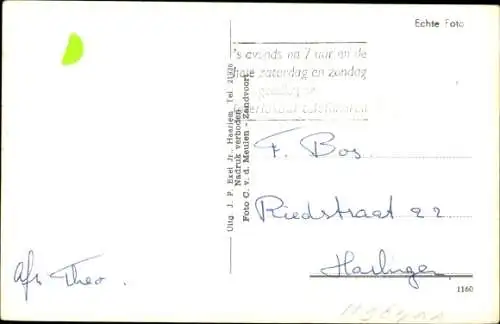 Echte Foto
's avonds na 7 uur en de
hele zaterdag en zondag
goedkoper
interlokaal telefoneren
Uitg. J. P. Exel Jr., Haarlem Tel. 21926
Nadruk verboden
Foto C. v. d. Meulen - Zandvoort
F. Bos
Riedstraat 22
Harlingen
Afz Theo.
1160